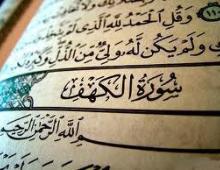 وَقُلِ الْحَمْدُ لِلَّهِ الَّذِي لَمْ
وَلَمْ يَكُن لَّهُ وَلِيٌّ مِّنَ الذُّلِّ
سُورَةُ الْكَهْفِ
بِسْمِ اللَّهِ الرَّحْمَٰنِ الرَّحِيمِ